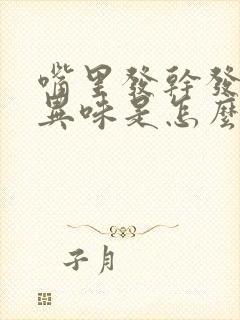 嘴里發幹發
異味是怎麽
子月